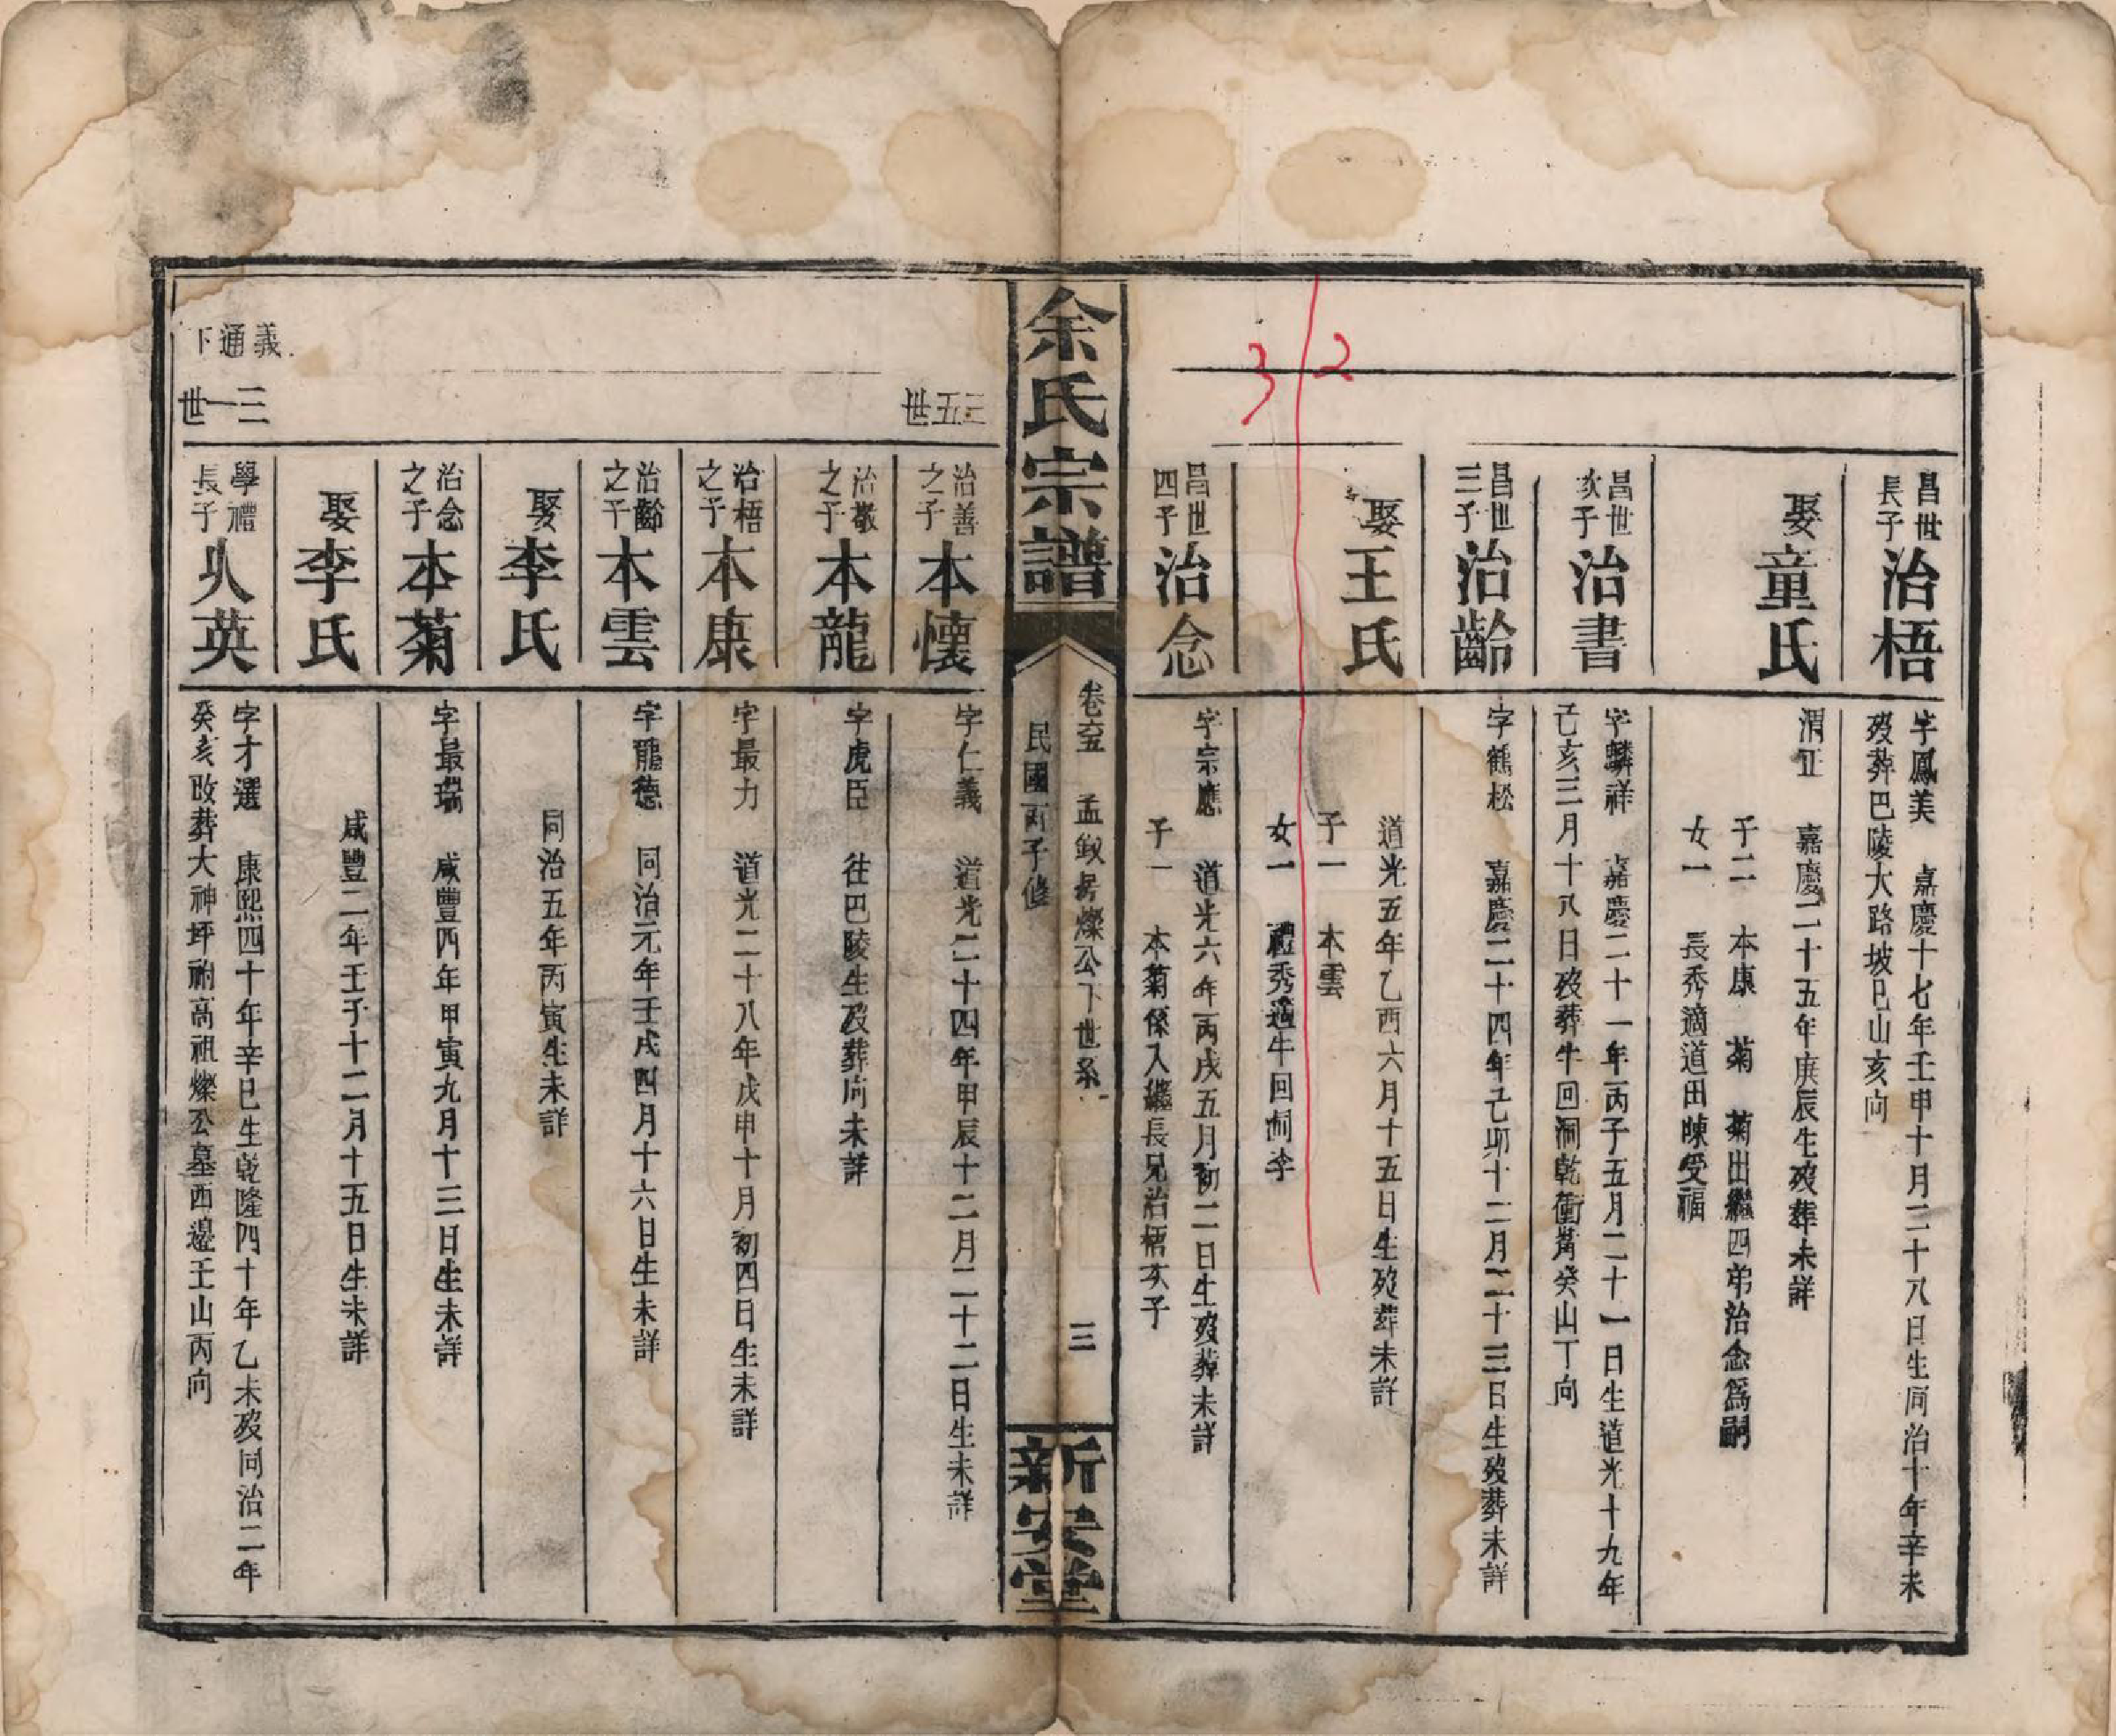 昌世長子治梧
字鳳美　嘉慶十七年壬申十月二十八日生同治十年辛未
歿葬巴陵大路坡巳山亥向
娶童氏
渭正　嘉慶二十五年庚辰生歿葬未詳
子二　本康　菊　菊出繼四弟治念爲嗣
女一　長秀適道田陳受福
昌世次子治書
字麟祥　嘉慶二十一年丙子五月二十一日生道光十九年
己亥三月十八日歿葬牛回洞乾衝嵛癸山丁向
昌世三子治齡
字鶴松　嘉慶二十四年己卯十二月二十三日生歿葬未詳
娶王氏
道光五年乙酉六月十五日生歿葬未詳
子一　本雲
女一　禮秀適牛回洞李
2
3
昌世四子治念
字宗應　道光六年丙戌五月初二日生歿葬未詳
子一　本菊係入繼長兄治梧次子
余氏宗譜
卷六五　孟釵房燦公下世系
民國丙子修
三
新安堂
三五世
治善之子本懷
字仁義　道光二十四年甲辰十二月二十二日生未詳
治敬之子本龍
字虎臣　往巴陵生歿葬向未詳
治梧之子本康
字最力　道光二十八年戊申十月初四日生未詳
治齡之子本雲
字龍德　同治元年壬戌四月十六日生未詳
娶李氏
同治五年丙寅生未詳
治念之子本菊
字最瑞　咸豐四年甲寅九月十三日生未詳
娶李氏
咸豐二年壬子十二月十五日生未詳
義通下
三一世
學禮長子乆英
字才選　康熙四十年辛巳生乾隆四十年乙未歿同治二年
癸亥改葬大神坪祔高祖燦公墓西邊壬山丙向